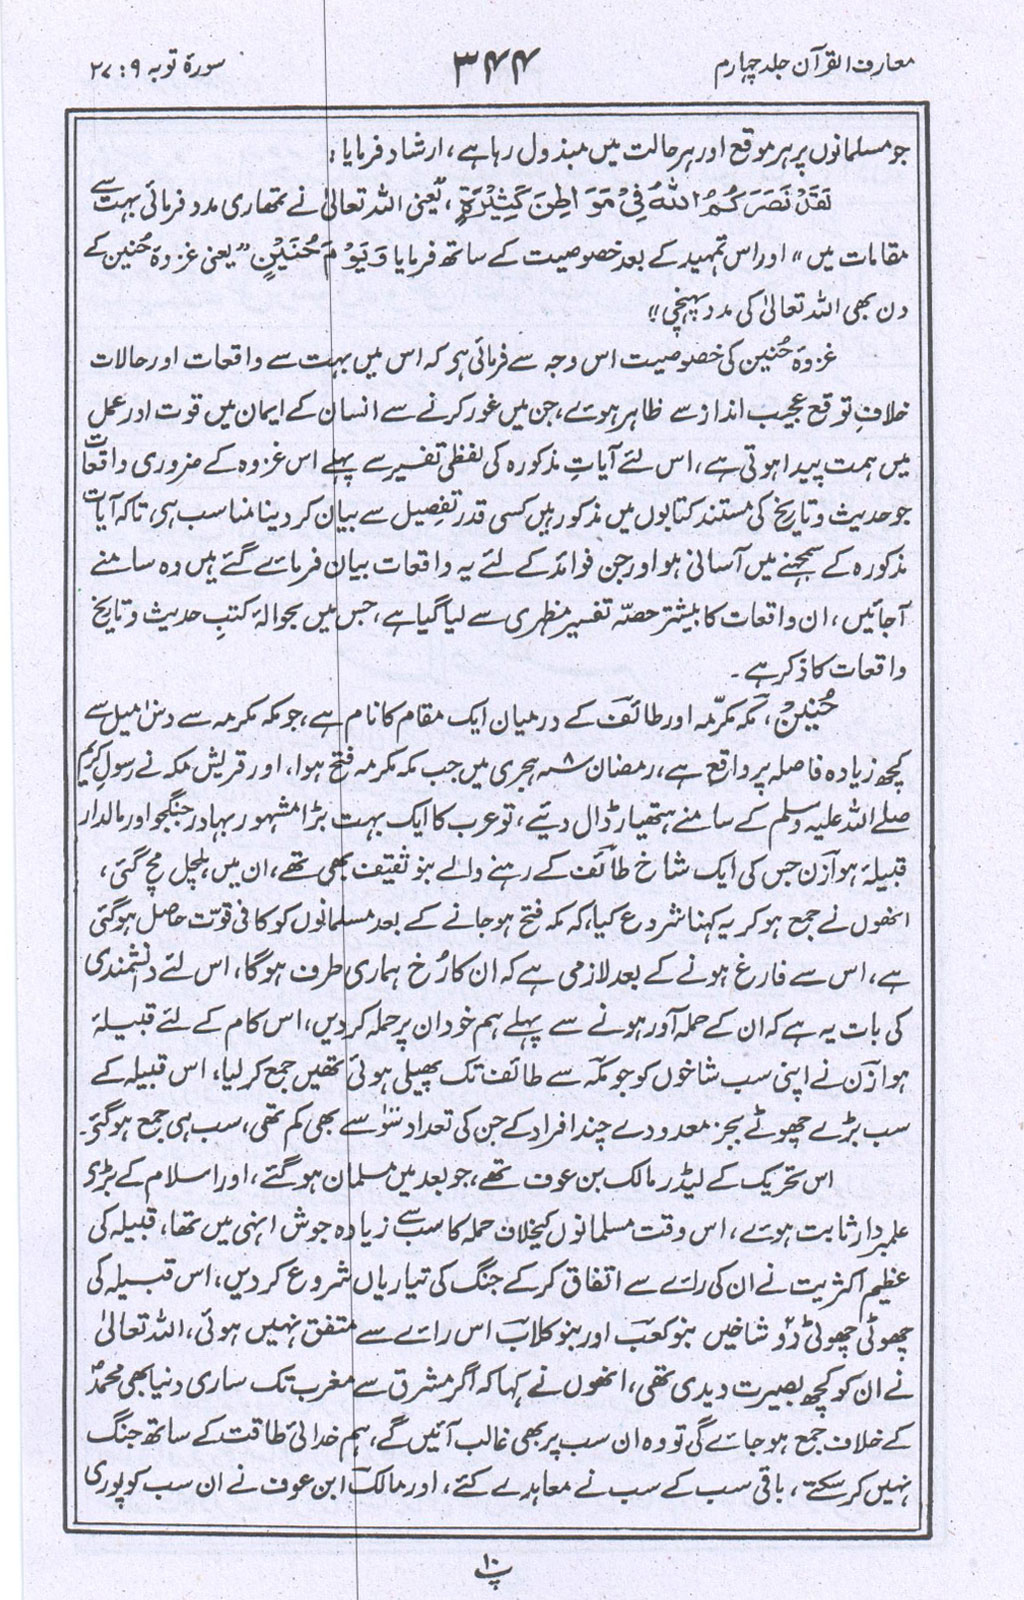 معارف القرآن جلد چہارم
۳۴۴
سورۂ توبہ ۹ : ۲۷
جو مسلمانوں پر ہر موقع اور ہر حالت میں مبذول رہا ہے، ارشاد فرمایا :
لَقَدْ نَصَرَكُمُ اللّٰهُ فِیْ مَوَاطِنَ كَثِیْرَةٍ، یعنی اللہ تعالیٰ نے تمھاری مدد فرمائی بہت سے
مقامات میں" اور اس تمہید کے بعد خصوصیت کے ساتھ فرمایا وَیَوْمَ حُنَیْنٍ "یعنی غزوۂ حُنین کے
دن بھی اللہ تعالیٰ کی مدد پہنچی"
غزوۂ حُنین کی خصوصیت اس وجہ سے فرمائی ہی کہ اس میں بہت سے واقعات اور حالات
خلافِ توقع عجیب انداز سے ظاہر ہوئے، جن میں غور کرنے سے انسان کے ایمان میں قوت اور عمل
میں ہمت پیدا ہوتی ہے، اس لئے آیاتِ مذکورہ کی لفظی تفسیر سے پہلے اس غزوہ کے ضروری واقعات
جو حدیث و تاریخ کی مستند کتابوں میں مذکور ہیں کسی قدر تفصیل سے بیان کر دینا مناسب ہی، تاکہ آیات
مذکورہ کے سمجھنے میں آسانی ہو اور جن فوائد کے لئے یہ واقعات بیان فرمائے گئے ہیں وہ سامنے
آجائیں، ان واقعات کا بیشتر حصّہ تفسیر مظہری سے لیا گیا ہے، جس میں بحوالۂ کتبِ حدیث و تاریخ
واقعات کا ذکر ہے۔
حُنَیْنْ، مکہ مکرّمہ اور طائف کے درمیان ایک مقام کا نام ہے، جو مکہ مکرمہ سے دس میل سے
کچھ زیادہ فاصلہ پر واقع ہے، رمضان ۸ھ ہجری میں جب مکہ مکرمہ فتح ہوا، اور قریش مکہ نے رسولِ کریم
صلے اللہ علیہ وسلم کے سامنے ہتھیار ڈال دئیے، تو عرب کا ایک بہت بڑا مشہور بہادر جنگجو اور مالدار
قبیلۂ ہوازن جس کی ایک شاخ طائف کے رہنے والے بنو ثقیف بھی تھے، ان میں ہلچل مچ گئی،
انھوں نے جمع ہو کر یہ کہنا شروع کیا، کہ مکہ فتح ہو جانے کے بعد مسلمانوں کو کافی قوّت حاصل ہوگئی
ہے، اس سے فارغ ہونے کے بعد لازمی ہے کہ ان کا رُخ ہماری طرف ہوگا، اس لئے دانشمندی
کی بات یہ ہے کہ ان کے حملہ آور ہونے سے پہلے ہم خود ان پر حملہ کر دیں، اس کام کے لئے قبیلۂ
ہوازن نے اپنی سب شاخوں کو جو مکہ سے طائف تک پھیلی ہوئی تھیں جمع کر لیا، اس قبیلہ کے
سب بڑے چھوٹے بجز معدودے چند افراد کے جن کی تعداد سَو سے بھی کم تھی، سب ہی جمع ہوگئے۔
اس تحریک کے لیڈر مالک بن عوف تھے، جو بعد میں مسلمان ہوگئے، اور اسلام کے بڑی
علمبردار ثابت ہوئے، اس وقت مسلمانوں کیخلاف حملہ کا سب سے زیادہ جوش انہی میں تھا، قبیلہ کی
عظیم اکثریت نے ان کی رائے سے اتفاق کر کے جنگ کی تیاریاں شروع کر دیں، اس قبیلہ کی
چھوٹی چھوٹی دو شاخیں بنو کعب اور بنو کلاب اس رائے سے متفق نہیں ہوئی، اللہ تعالیٰ
نے ان کو کچھ بصیرت دیدی تھی، انھوں نے کہا کہ اگر مشرق سے مغرب تک ساری دنیا بھی محمدؐ
کے خلاف جمع ہو جائے گی تو وہ ان سب پر بھی غالب آئیں گے، ہم خدائی طاقت کے ساتھ جنگ
نہیں کر سکتے، باقی سب کے سب نے معاہدے کئے، اور مالک ابن عوف نے ان سب کو پوری
پ ۱۰